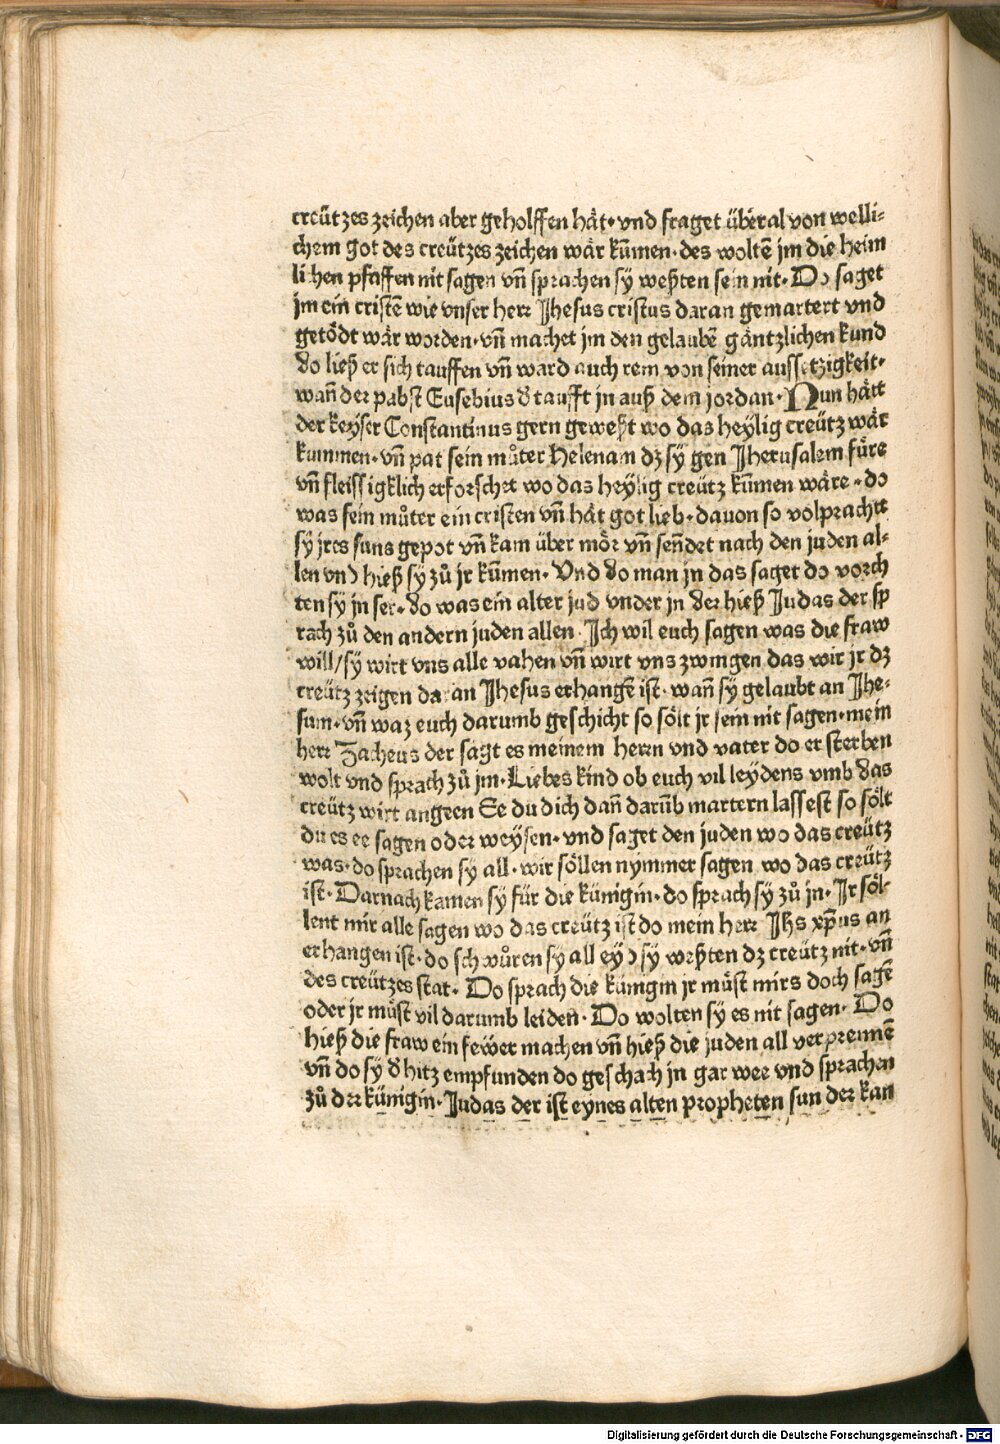 creützes zeichen aber geholffen hät· vnd fraget überal von welli⸗
chem got des creützes zeichen wär kūmen· des woltē jm die heim
lichen pfaffen nit sagen vn̄ sprachen sy weßten sein nit· Do saget
jm ein cristē wie vnser herr Jhesus cristus daran gemartert vnd
getödt wär worden· vn̄ machet jm den gelaubē gäntzlichen kund
do ließ er sich tauffen vn̄ ward auch rein von seiner aussetzigkeit·
wan̄ der pabst Eusebius d̕ taufft jn auß dem jordan· Nun hätt
der keyser Constantinus gern geweßt wo das heylig creütz wär
kummen· vn̄ pat sein můter Helenam dz sy gen Jherusalem füre
vn̄ fleissigklich erforschet wo das heylig creütz kūmen wäre· do
was sein můter ein cristen vn̄ hät got lieb· dauon so volprachtt
sy jres suns gepot vn̄ kam über mör vn̄ sen̄det nach den juden al⸗
len vnd hieß sy zů jr kūmen· Vnd do man jn das saget do vorch
ten sy jn ser· do was ein alter jud vnder jn der hieß Judas der sp
rach zů den andern juden allen· Ich wil euch sagen was die fraw
will/ sy wirt vns alle vahen vn̄ wirt vns zwingen das wir jr dz
creütz zeigen daran Jhesus erhangē ist· wan̄ sy gelaubt an Jhe⸗
sum· vn̄ waz euch darumb geschicht so sölt jr jem nit sagen· mein
herr Zacheus der sagt es meinem herrn vnd vater do er sterben
wolt vnd sprach zů jm· Liebes kind ob euch vil leydens vmb das
creütz wirt angeen Ee du dich dan̄ darūb martern lassest so sölt
du es ee sagen oder weysen· vnd saget den juden wo das creütz
was· do sprachen sy all· wir söllen nymmer sagen wo das creütz
ist· Darnach kamen sy für die künigin· do sprach sy zů jn· Ir söl⸗
lent mir alle sagen wo das creütz ist do mein herr Jhs xp̄us an
erhangen ist· do schwůren sy all eyd sy weßten dz creütz nit· vn̄
des creützes stat· Do sprach die künigin jr müst mirs doch sagē
oder jr müst vil darumb leiden· Do wolten sy es nit sagen· Do
hieß die fraw ein fewer machen vn̄ hieß die juden all verprennē
vn̄ do sy d̕ hitz empfunden do geschah jn gar wee vnd sprachen
zů der künigin· Judas der ist eynes alten propheten sun der kan
Digitalisierung gefördert durch die Deutsche Forschungsgemeinschaft - DFG